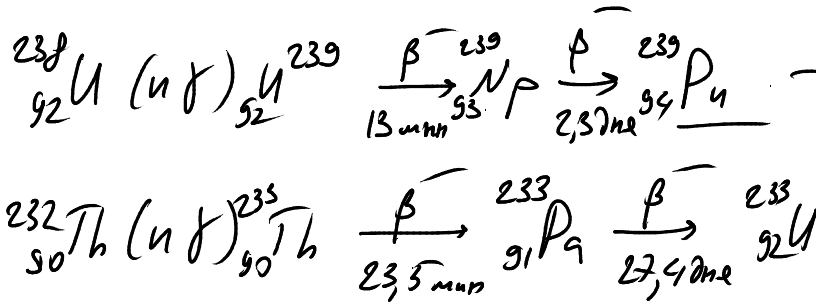 ²³⁸₉₂U (n γ) ₉₂U²³⁹ —β⁻→ 13 мин ²³⁹₉₃Np —β⁻→ 2,3 дня ²³⁹₉₄Pu
²³²₉₀Th (n γ) ²³³₉₀Th —β⁻→ 23,5 мин ²³³₉₁Pa —β⁻→ 27,4 дня ²³³₉₂U